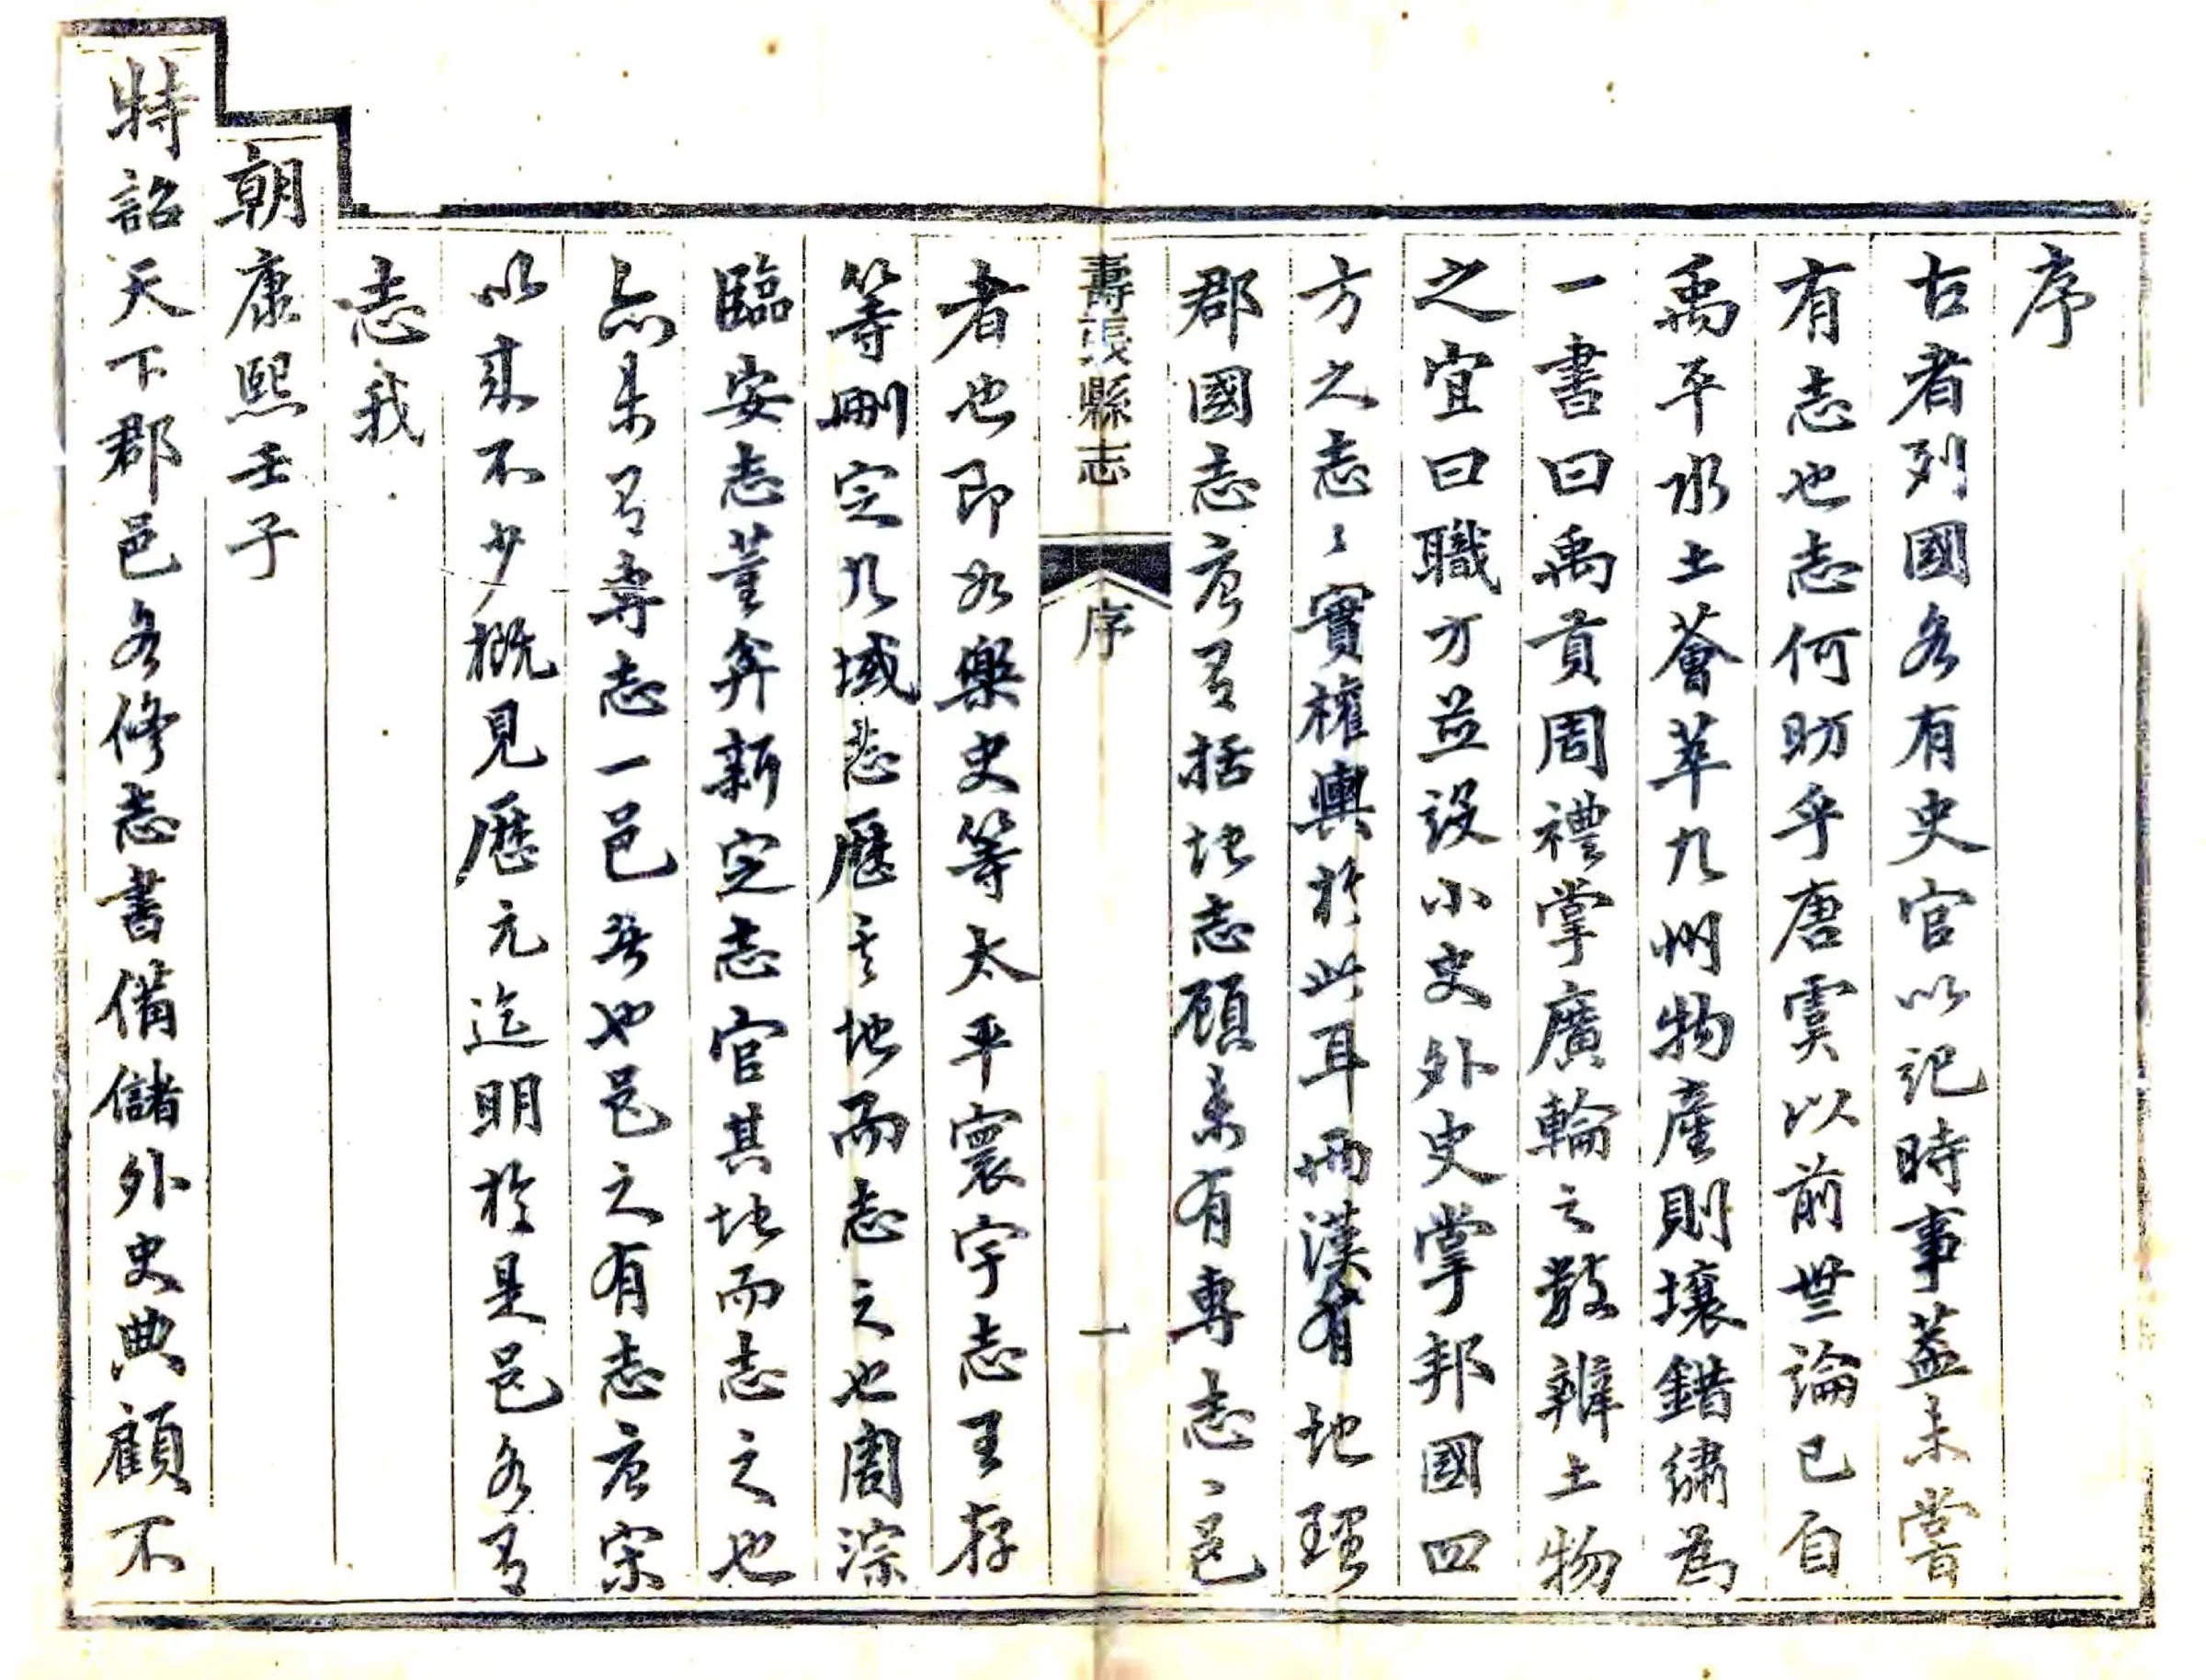 序
古者列國各有史官以記時事蓋未嘗
有志也志何昉乎唐虞以前世論已自
禹平水土薈萃九州物產則壤錯繡為
一書曰禹貢周禮掌廣輪之數辨土物
之宜曰職方並設小史外史掌邦國四
方之志〻實權輿於此耳兩漢有地理
郡國志唐有括地志顧未有專志〻邑
壽張縣志
序
一
者也即如樂史等太平寰宇志王存
等刪定九域志歷其地而志之也周淙
臨安志董弅新定志官其地而志之也
亦未有專志一邑者也邑之有志唐宋
以來不少概見歷元迄明於是邑各有
志我
朝康熙壬子
特詔天下郡邑各修志書備儲外史典顧不